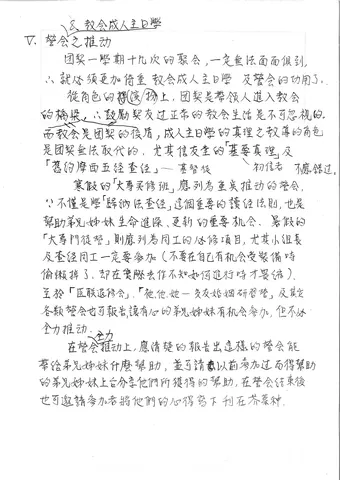 及教會成人主日學
V. 營會之推動
團契一學期十九次的聚會,一定無法面面俱到,
∴就必須更加倚重教會成人主日學及營會的功用了.
從角色的扮演上,團契是帶領人進入教會
的橋樑,∴鼓勵契友过正常的教会生活是不可忽視的.
而教会是团契的後盾,成人主日學的真理之教導的角色
是团契無法取代的,尤其信友堂的「基要真理」及
「舊約摩西五經查經」 初信者 不應錯过.
寒假的「大專靈修班」應列為重矣推動的營会,
∵不僅是學「歸納法查經」這個重要的讀經法則,也是
幫助弟兄姊妹生命進深、更新的重要机会. 暑假的
「大專門徒營」則應列為同工的必修項目,尤其小組長
及查經同工一定要参加(不要在自己有机会受裝備時
偷懶掉了,却在實際去作不知如何進行時才要作).
至於「區联退修会」,「他,她—交友婚姻研習營」及其它
各類營会也可報告讓有心的弟兄姊妹有机会参加,但不必
全力推动.
在營会推动上,應清楚的報告出這樣的營会能
帶給弟兄姊妹什麼幫助,並可請以前参加过而得幫助
的弟兄姊妹上台分享他們所獲得的幫助,在營会結束後
也可邀請参加者將他們的心得寫下刊在